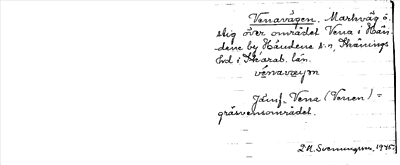 Venavägen. Markväg o.
stig över området Vena i Hän-
dene by Händene s:n, Skånings
hd i Skarab. län.
vénavæym
Jämf. Vena (Venen) =
gräsvensområdet.
D.N. Svenungsson, 1945.